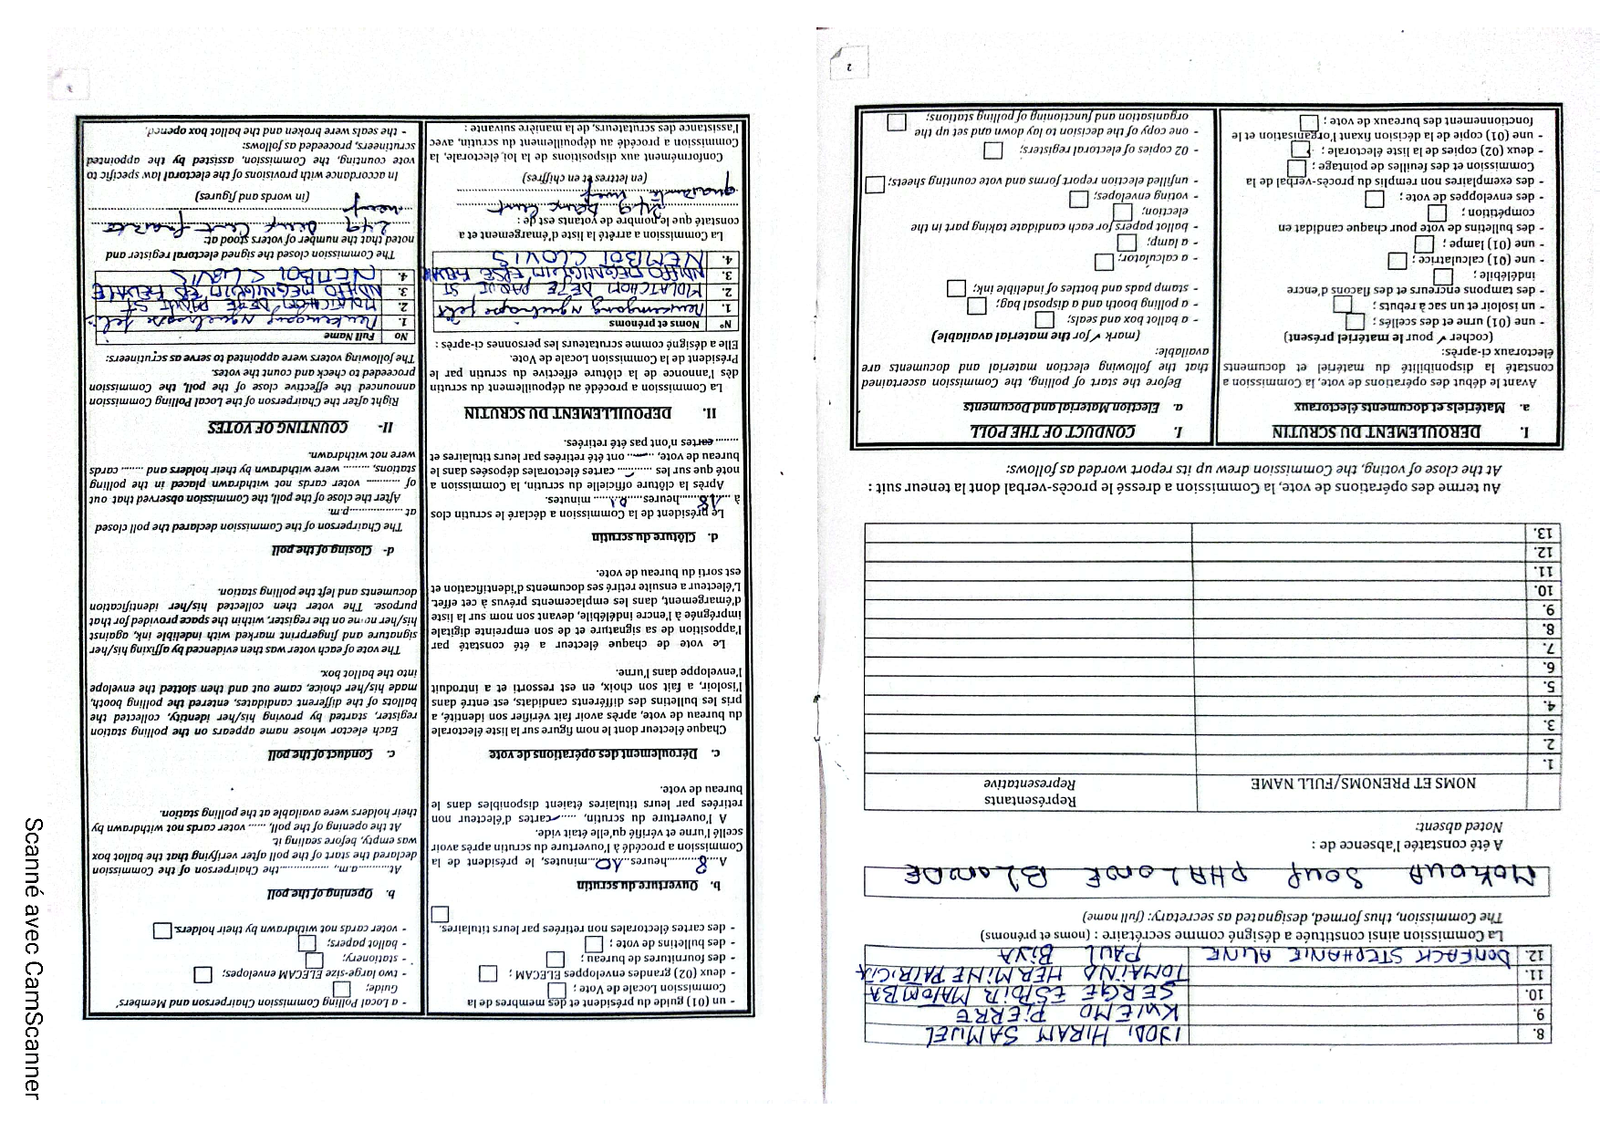 8. IYODI HIRAM SAMUEL
9. KWEMO PIERRE
10. SERGE ESPOIR MATOMBA
11. TOMAINO HERMINE PATRICIA
12. DONFACK STEPHANIE ALINE PAUL BIYA
La Commission ainsi constituée a désigné comme secrétaire : (noms et prénoms)
The Commission, thus formed, designated as secretary: (full name)
MOKOUA SOUP PHALONE BLONDE
A été constatée l'absence de :
Noted absent:
NOMS ET PRENOMS/FULL NAME
Représentants
Representative
1.
2.
3.
4.
5.
6.
7.
8.
9.
10.
11.
12.
13.
Au terme des opérations de vote, la Commission a dressé le procès-verbal dont la teneur suit :
At the close of voting, the Commission drew up its report worded as follows:
I. DEROULEMENT DU SCRUTIN
a. Matériels et documents électoraux
Avant le début des opérations de vote, la Commission a
constaté la disponibilité du matériel et documents
électoraux ci-après:
(cocher ✓ pour le matériel présent)
- une (01) urne et des scellés ;
- un isoloir et un sac à rebuts ;
- des tampons encreurs et des flacons d'encre
indélébile ;
- une (01) calculatrice ;
- une (01) lampe ;
- des bulletins de vote pour chaque candidat en
compétition ;
- des enveloppes de vote ;
- des exemplaires non remplis du procès-verbal de la
Commission et des feuilles de pointage ;
- deux (02) copies de la liste électorale ;
- une (01) copie de la décision fixant l'organisation et le
fonctionnement des bureaux de vote ;
I. CONDUCT OF THE POLL
a. Election Material and Documents
Before the start of polling, the Commission ascertained
that the following election material and documents are
available:
(mark ✓ for the material available)
- a ballot box and seals;
- a polling booth and a disposal bag;
- stamp pads and bottles of indelible ink;
- a calculator;
- a lamp;
- ballot papers for each candidate taking part in the
election;
- voting envelopes;
- unfilled election report forms and vote counting sheets;
- 02 copies of electoral registers;
- one copy of the decision to lay down and set up the
organisation and functioning of polling stations;
2
- un (01) guide du président et des membres de la
Commission Locale de Vote ;
- deux (02) grandes enveloppes ELECAM ;
- des fournitures de bureau ;
- des bulletins de vote ;
- des cartes électorales non retirées par leurs titulaires.
b. Ouverture du scrutin
A 8 heures 10 minutes, le président de la
Commission a procédé à l'ouverture du scrutin après avoir
scellé l'urne et vérifié qu'elle était vide.
A l'ouverture du scrutin, ..... cartes d'électeur non
retirées par leurs titulaires étaient disponibles dans le
bureau de vote.
c. Déroulement des opérations de vote
Chaque électeur dont le nom figure sur la liste électorale
du bureau de vote, après avoir fait vérifier son identité, a
pris les bulletins des différents candidats, est entré dans
l'isoloir, a fait son choix, en est ressorti et a introduit
l'enveloppe dans l'urne.
Le vote de chaque électeur a été constaté par
l'apposition de sa signature et de son empreinte digitale
imprégnée à l'encre indélébile, devant son nom sur la liste
d'émargement, dans les emplacements prévus à cet effet.
L'électeur a ensuite retiré ses documents d'identification et
est sorti du bureau de vote.
d. Clôture du scrutin
Le président de la Commission a déclaré le scrutin clos
à 18 heures 01 minutes.
Après la clôture officielle du scrutin, la Commission a
noté que sur les ...... cartes électorales déposées dans le
bureau de vote, ...... ont été retirées par leurs titulaires et
...... cartes n'ont pas été retirées.
II. DEPOUILLEMENT DU SCRUTIN
La Commission a procédé au dépouillement du scrutin
dès l'annonce de la clôture effective du scrutin par le
Président de la Commission Locale de Vote.
Elle a désigné comme scrutateurs les personnes ci-après :
N° Noms et prénoms
1.
2. MDLATCHOM DETE PARUIT ST
3.
4. NEMBOI CLOVIS
La Commission a arrêté la liste d'émargement et a
constaté que le nombre de votants est de :
249 deux cent
quarante neuf
(en lettres et en chiffres)
Conformément aux dispositions de la loi électorale, la
Commission a procédé au dépouillement du scrutin, avec
l'assistance des scrutateurs, de la manière suivante :
- a Local Polling Commission Chairperson and Members'
Guide;
- two large-size ELECAM envelopes;
- stationery;
- ballot papers;
- voter cards not withdrawn by their holders.
b. Opening of the poll
At...........a.m., ...............the Chairperson of the Commission
declared the start of the poll after verifying that the ballot box
was empty, before sealing it.
At the opening of the poll, ...... voter cards not withdrawn by
their holders were available at the polling station.
c. Conduct of the poll
Each elector whose name appears on the polling station
register, started by proving his/her identity, collected the
ballots of the different candidates, entered the polling booth,
made his/her choice, came out and then slotted the envelope
into the ballot box.
The vote of each voter was then evidenced by affixing his/her
signature and fingerprint marked with indelible ink, against
his/her name on the register, within the space provided for that
purpose. The voter then collected his/her identification
documents and left the polling station.
d- Closing of the poll
The Chairperson of the Commission declared the poll closed
at ..................p.m.
After the close of the poll, the Commission observed that out
of .......... voter cards not withdrawn placed in the polling
stations, ........ were withdrawn by their holders and ....... cards
were not withdrawn.
II- COUNTING OF VOTES
Right after the Chairperson of the Local Polling Commission
announced the effective close of the poll, the Commission
proceed to check and count the votes.
The following voters were appointed to serve as scrutineers:
No Full Name
1.
2.
3.
4. NEMBOI CLOVIS
The Commission closed the signed electoral register and
noted that the number of voters stood at:
249 Deux cent quarante
neuf
(in words and figures)
In accordance with provisions of the electoral law specific to
vote counting, the Commission, assisted by the appointed
scrutineers, proceeded as follows:
- the seals were broken and the ballot box opened,
Scanné avec CamScanner